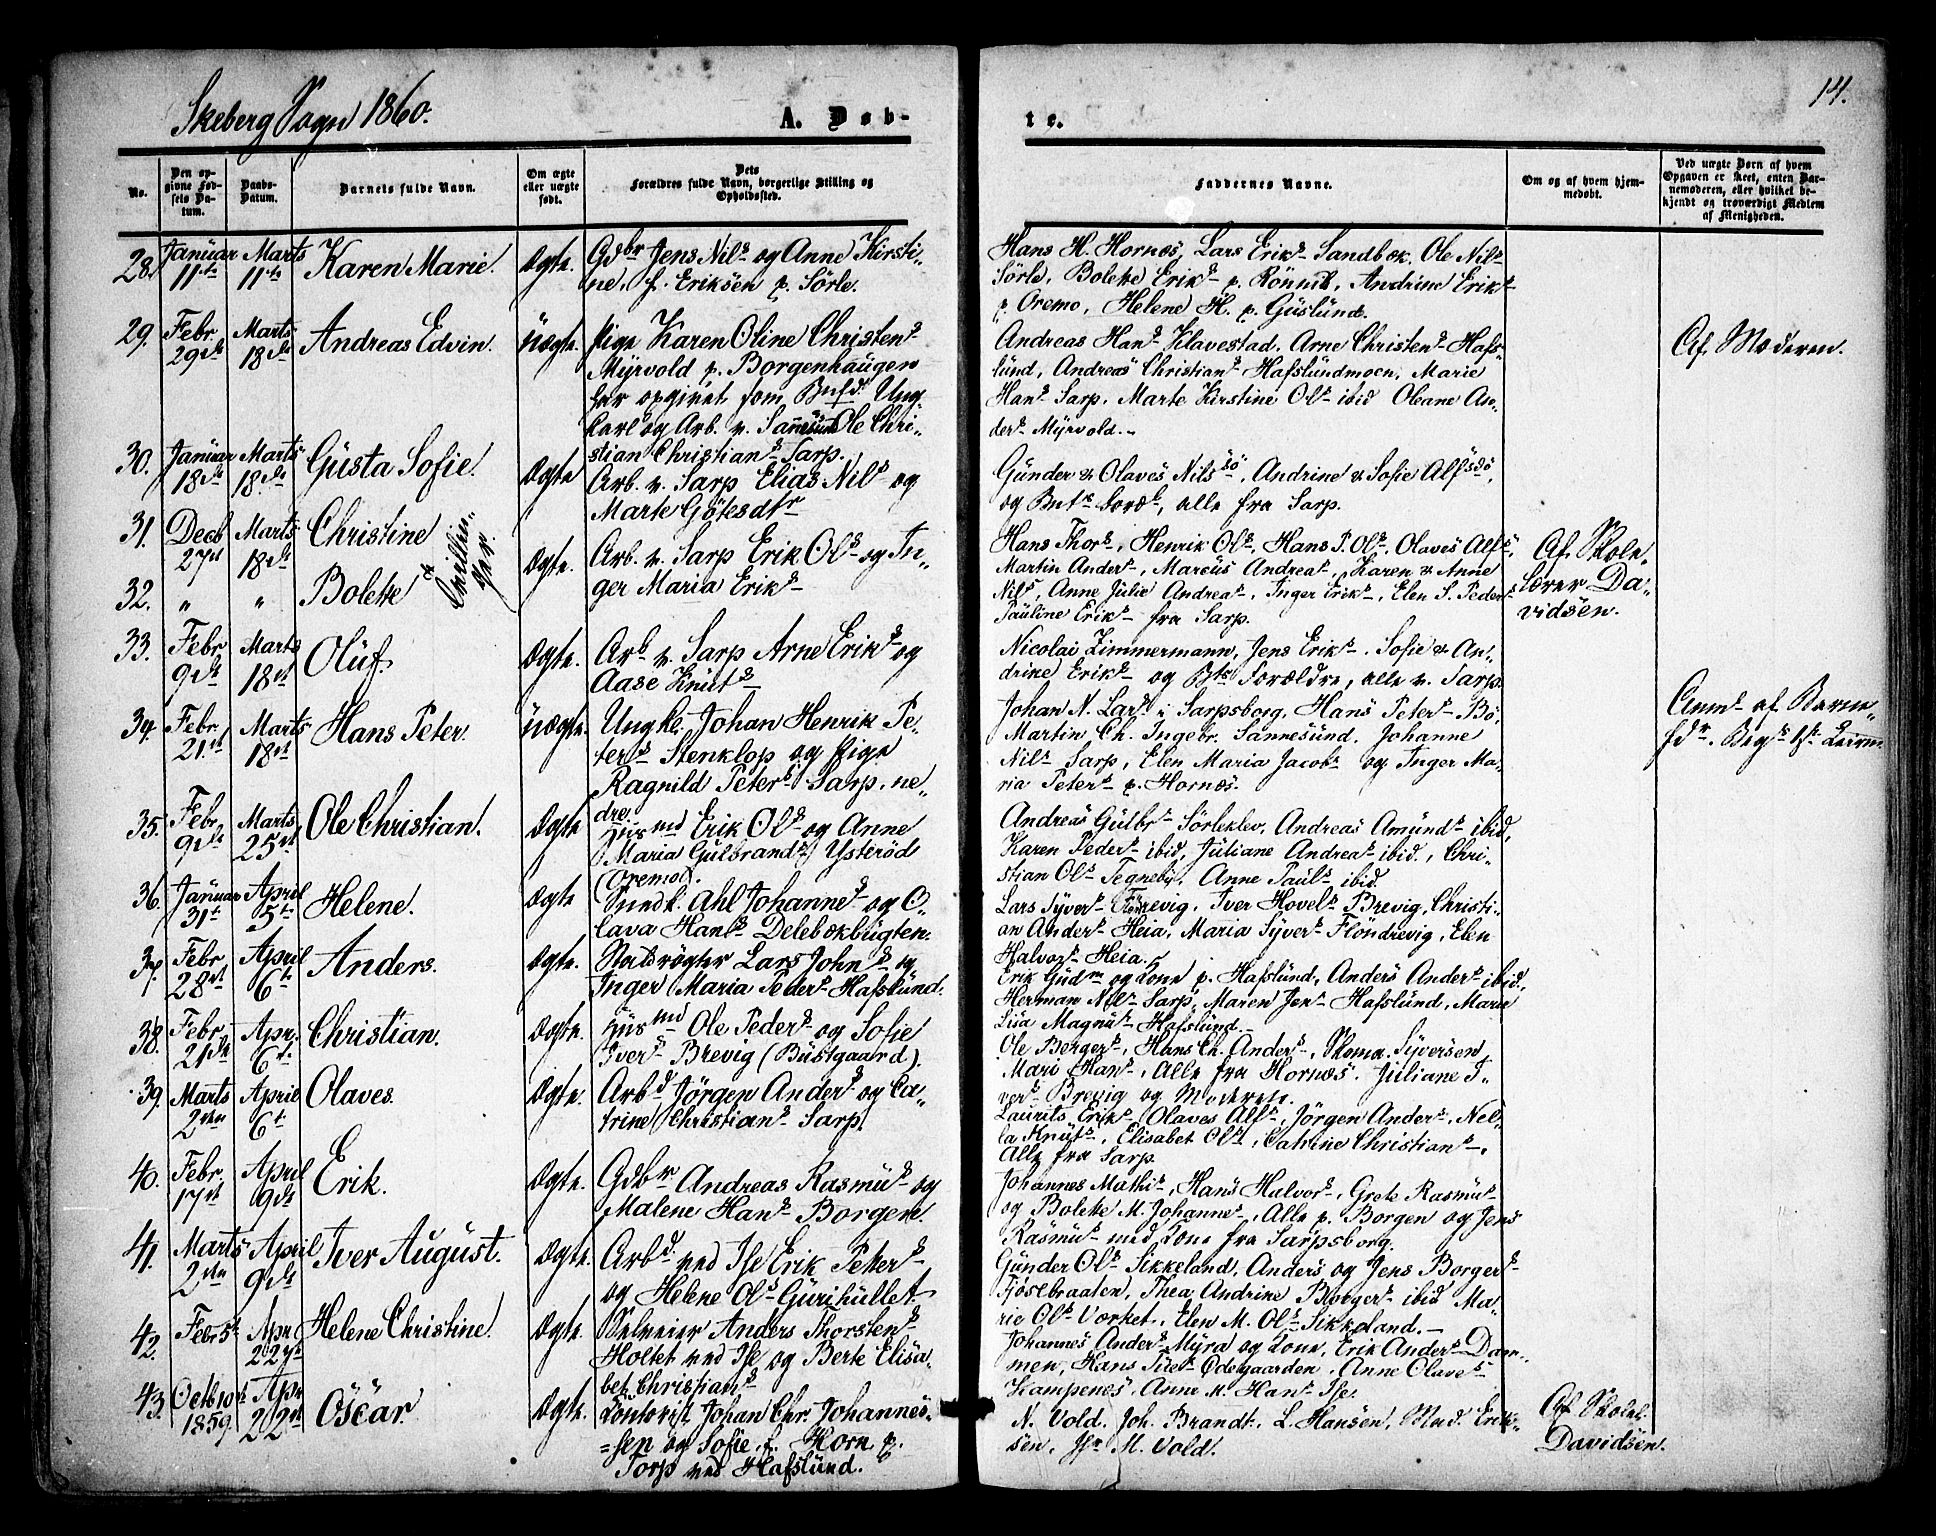 Skeberg Sogn 1860.
A. Døb-
te.
14.
No.
Den op-
givne Fød-
sels Da-
tum.
Daabs-
Datum.
Barnets fulde Navn.
Om ægte
eller uægte
født.
Dets
Forældres fulde Navn, borgerlige Stilling og
Opholdssted.
Faddernes Navne.
Om og af hvem hjem-
medøbt.
Ved uægte Børn af hvem
Opgaven er skeet, enten Bar-
nemoderen, eller hvilket be-
kjendt og troværdigt Medlem
af Menigheden.
28. Januar 11te Marts 11te Karen Marie. Ægte. Gdbr Jens Nils og Anne Kirsti-
ne, f. Eriksen p. Sörle.
Hans H. Hornæs, Lars Eriks Sandbæk, Ole Nils
Sörle, Bolette Eriks p. Rönnil, Andrine Eriks
p. Oremo, Helene H. p. Guslund.
29. Febr. 29de Marts 18de Andreas Edvin. Uægte. Pige Karen Oline Christens
Myrvold p. Borgenhaugen
har opgivet som Bnfd. Ung-
karl og Arb. v. Sannesund Ole Chri-
stian Christians Sarp.
Andreas Hans Klavestad, Arne Christens Hafs-
lund, Andreas Christians Hafslundmoen, Marie
Hans Sarp, Marte Kirstine Ols ibid Oleane An-
ders Myrvold.-
Af Moderen.
30. Januar 18de Marts 18de Gusta Sofie. Ægte Arb. v. Sarp Elias Nils og
Marte Götesdtr
Gunder & Olaves Nilssö, Andrine & Sofie Alfsdö,
og Bnts Foræl, alle fra Sarp.
31. Decb 27d Marts 18de Christine
32. " " Bolette
& Tvillin-
ger.
Ægte. Arb. v. Sarp Erik Ols og In-
ger Maria Eriks
Hans Thors, Henrik Ols, Hans P. Ols, Olaves Alfs,
Martin Anders, Marcus Andreas, Karen & Anne
Nils, Anne Julie Andreas, Inger Eriks, Elen S. Peders
Pauline Eriks fra Sarp.
Af Skole-
lærer Da-
vidsen.
33. Febr 9de Marts 18de Oluf. Ægte. Arb v. Sarp Arne Eriks og
Aase Knuts
Nicolai Zimmermann, Jens Eriks. Sofie & An-
drine Eriks og Bts Forældre, alle v. Sarp.
34. Febr. 21st Marts 18de Hans Peter. Uægte. Ungk. Johan Henrik Pe-
ters Stenklop og Pige
Ragnild Peters Sarp, ne-
dre.
Johan N. Lars i Sarpsborg, Hans Peters Bö,
Martin Ch. Ingebr. Sannesund. Johanne
Nils Sarp, Elen Maria Jacobs og Inger Ma-
ria Peters p. Hornæs.
35. Febr. 9de Marts 25de Ole Christian. Ægte Husmd Erik Ols og Anne
Maria Gulbrands Ysteröd
(Oremo).
Andreas Gulbr Sörleklev, Andreas Amunds ibid,
Karen Peders ibid, Juliane Andreas ibid., Chri-
stian Ols Tegneby, Anne Pauls ibid.
36. Januar 31t April 5t Helene. Ægte Johannes og O-
lava Hans
Lars Syvers Iver Hovels Brevig, Christi-
an Anders Heia, Maria Syvers Flöndrevig, Elen
Halvors Heia.
37. Febr 28de April 6t Anders. Ægte. Lars Johns og
Inger Maria Peders Hafslund.
Erik Gudm og Kone p. Hafslund, Anders Anders ibid,
Herman Nils Sarp, Maren Jens Hafslund, Marie
Lisa Magnus Hafslund.-
38. Febr. 21de Apr. 6t. Christian. Ægte. Husmd Ole Peders og Sofie
Ivers Brevig (Bustgaard).
Ole Bergers, Hans Ch. Anders, Skoma. Syversen
Mari Hans, Alle fra Hornæs. Juliane I-
vers Brevig og Moderen.
39. Marts 2den April 6t Olaves. Ægte. Arbd Jörgen Anders og Ca-
trine Christians Sarp.
Laurits Eriks Olaves Alfs, Jörgen Anders, Nel-
la Knuts, Elisabet Ols, Catrine Christians.
Alle fra Sarp.
40. Febr. 17de April 9de Erik. Ægte. Gdbr Andreas Rasmus og
Malene Hans Borgen.
Johannes Mathis, Hans Halvors, Grete Rasmus
og Bolette M. Johannes, Alle p. Borgen og Jens
Rasmus med Kone fra Sarpsborg.
41. Marts 2den April 9de Iver August. Ægte. Arbd. ved Ise Erik Peters
og Helene Ols Gurihullet
Gunder Ols Sikkeland, Anders og Jens Borgers
Fjösebraaten, Thea Andrine Borgers ibid Ma-
rie Ols Vorket, Elen M. Ols Sikkeland.-
42. Febr 5t Apr 22de Helene Christine. Ægte. Anders Thorstens
Holtet ved Ise og Berte Elisa-
bet Christians
Johannes Anders Myra og Kone, Erik Anders Dam-
men, Hans Ödegaarden, Anne Olaves
Kampenes, Anne M. Hans Ise.
43. Octb 10de 1859. Apr 22de Oscar Ægte. Kontorist Johan Chr. Johannes-
=sen og Sofie, f. Horn p.
Torp ved Hafslund.
N. Vold. Joh. Brandt, L. Hansen, Mad. Erik-
sen, Jfr M. Vold.
Af Skolel.
Davidsen.